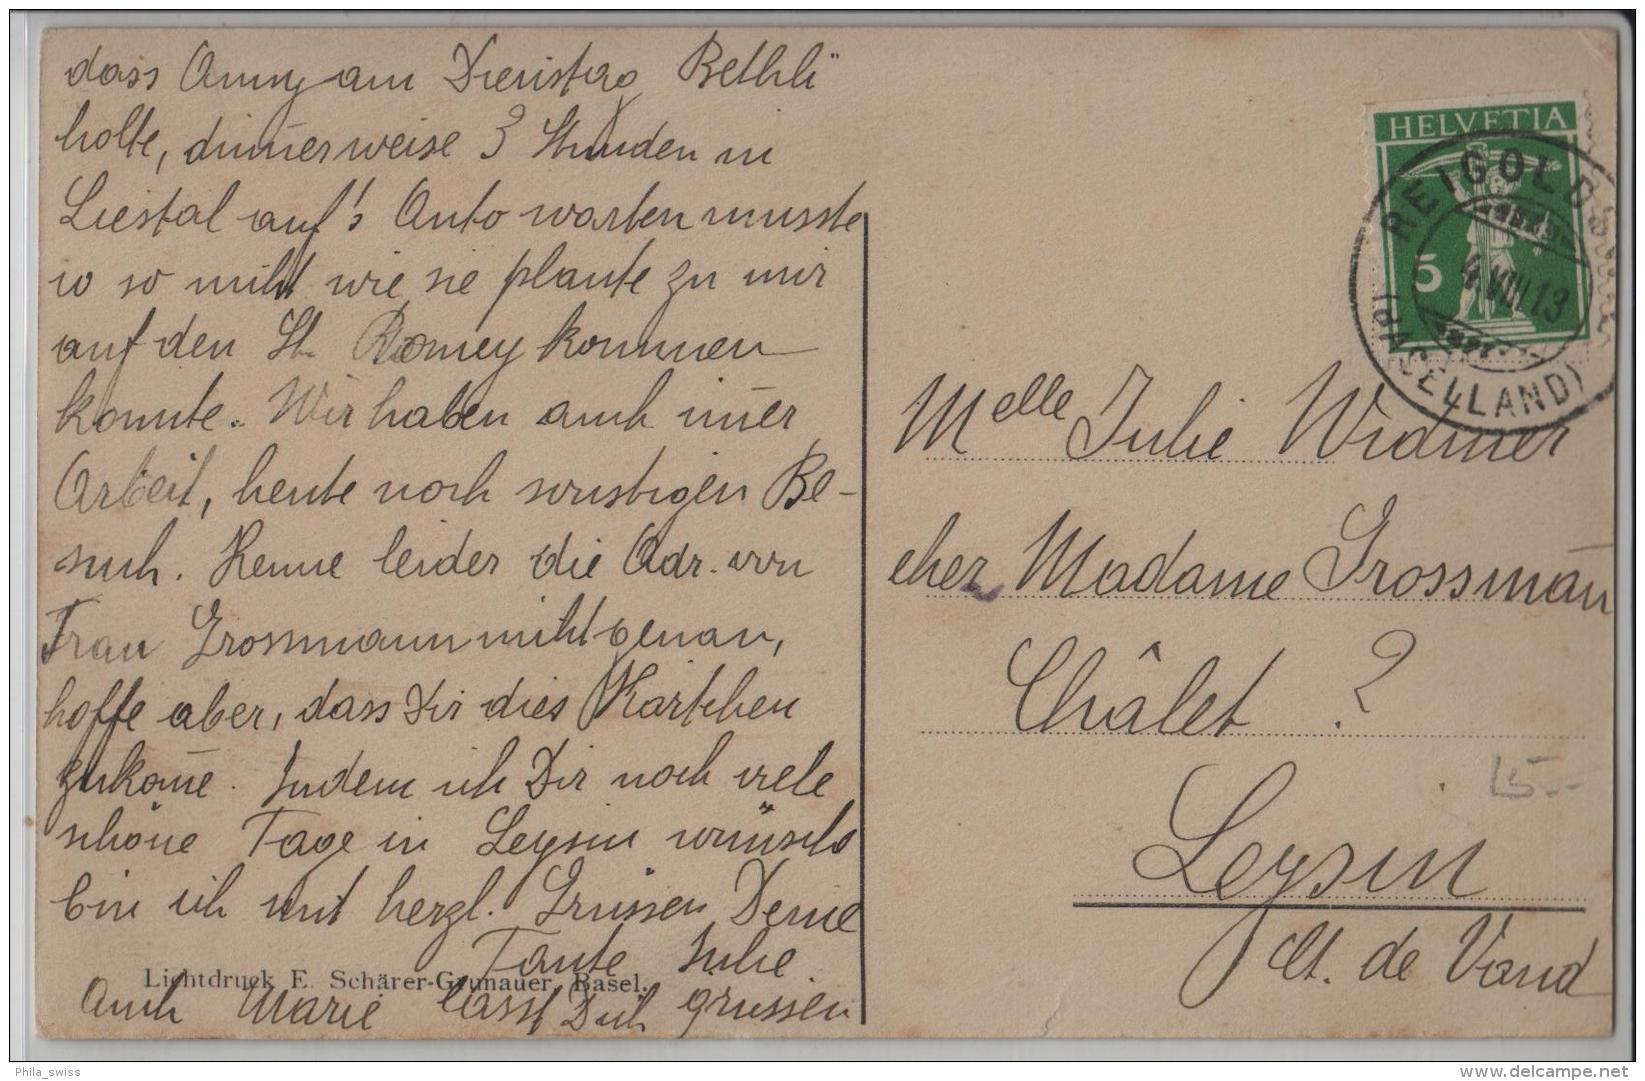 dass Anny am Dienstag Bethli
holte, dum̄erweise 3 Stunden in
Liestal auf's Auto warten musste
u so nicht wie sie plante zu mir
auf den St. Romey kommen
konnte. Wir haben auch im̄er
Arbeit, heute noch sonstigen Be-
such. Kenne leider die Adr. von
Frau Grossmann nicht genau,
hoffe aber, dass Dir dies Kärtchen
zukom̄e. Indem ich Dir noch viele
schöne Tage in Leysin wünsche
bin ich mit herzl. Grüssen Deine
Tante Julie.
Lichtdruck E. Schärer-Grunauer, Basel.
Auch Marie lässt Dich grüssen
HELVETIA
5
REIGOLDSWIL
4.VIII.13
(BASELLAND)
Melle Julie Widmer
chez Madame Grossman̄
Châlet ?
15.-
Leysin
Ct. de Vaud
Phila_swiss
www.delcampe.net